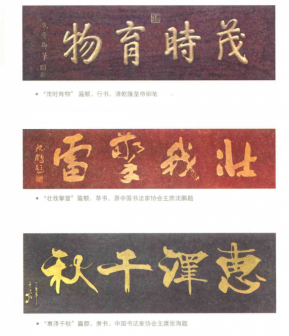 茂時育物
• “茂时育物” 匾额，行书，清乾隆皇帝御笔
壮我擎雷
沈鹏题
• “壮我擎雷” 匾额，草书，原中国书法家协会主席沈鹏题
惠澤千秋
• “惠泽千秋” 匾额，隶书，中国书法家协会主席张海题